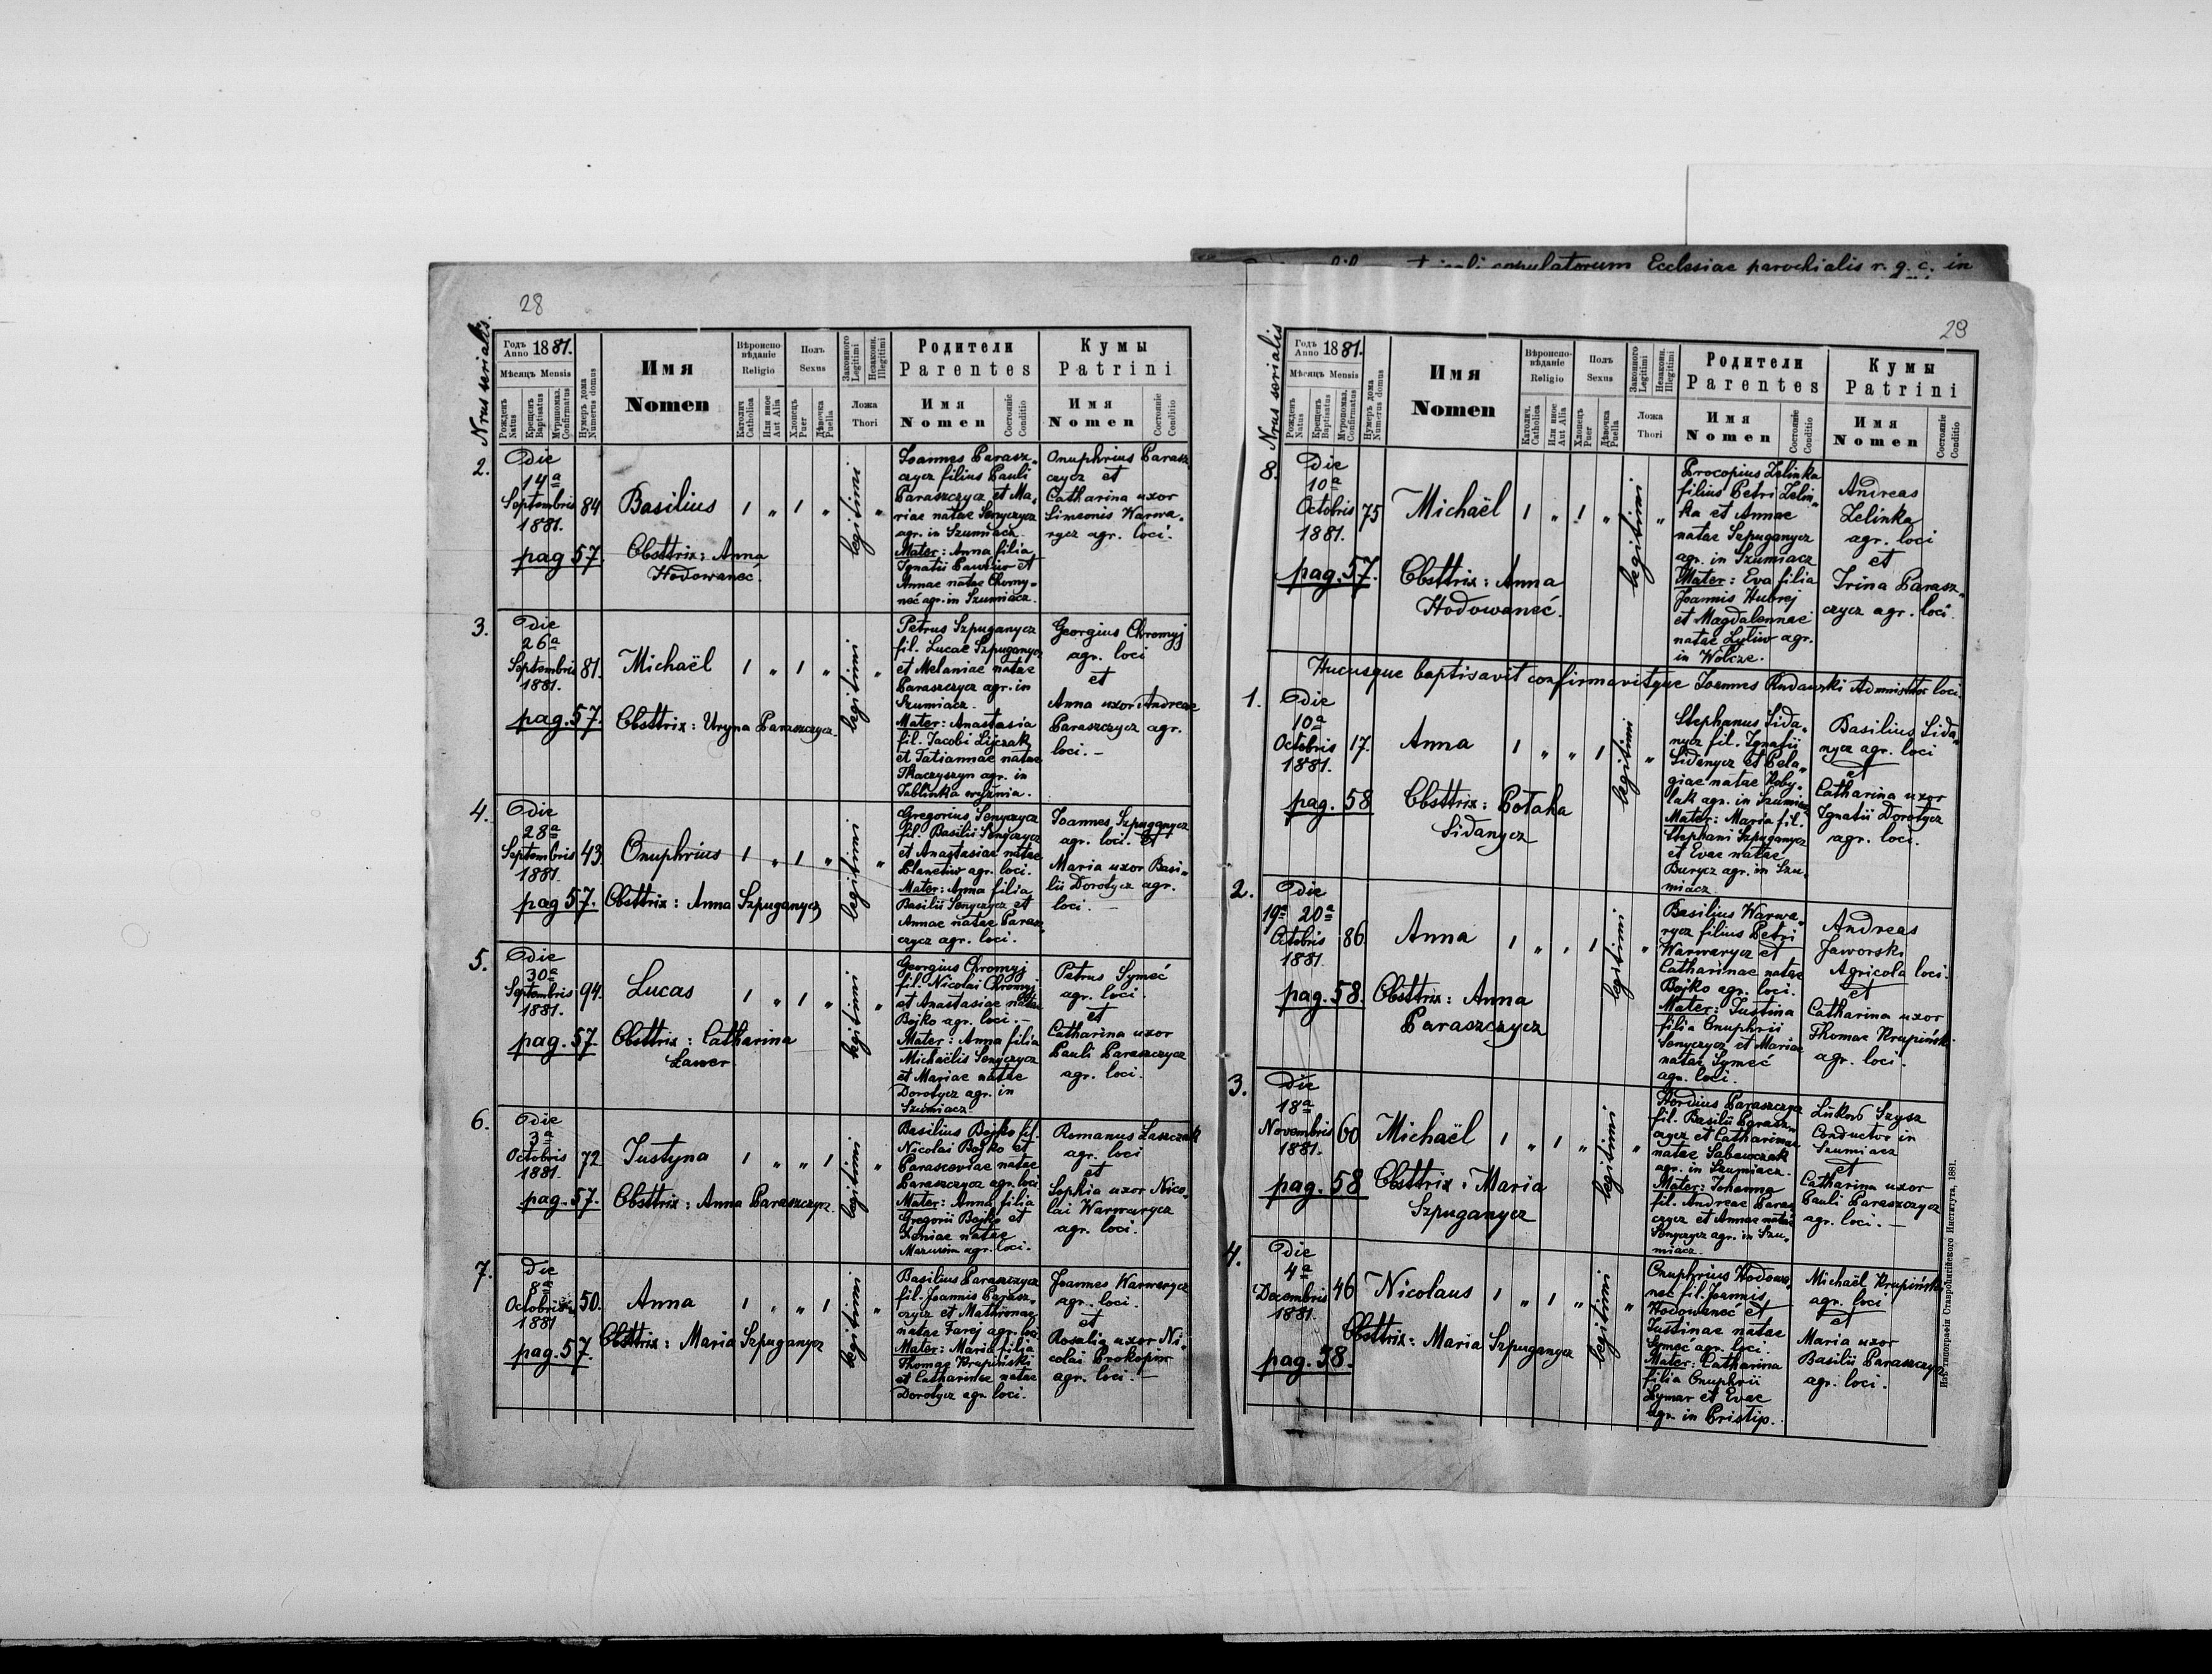 Copia ex libro metricali copulatorum Ecclesiae parochialis r. g. c. in
28
Nrus serialis.
Годъ Anno 1881.
Мѣсяцъ Mensis
Рожденъ Natus
Крещенъ Baptisatus
Мѵропомаз. Confirmatus
Нумеръ дома Numerus domus
Имя
Nomen
Вѣроиспо-
вѣданіе
Religio
Католич Catholica
Или иное Aut Alia
Полъ
Sexus
Хлопецъ Puer
Дѣвочка Puella
Законного Legitimi
Незаконн. Illegitimi
Ложа
Thori
Родители
Parentes
Имя
Nomen
Состояніе Conditio
Кумы
Patrini
Имя
Nomen
Состояніе Conditio
2.
Die
14ª
Septembris
1881.
pag 57.
84
Basilius
Obsttrix: Anna
Hodowaneć.
1 „ 1 „ legitimi „
Joannes Parasz„
czycz filius Pauli
Paraszczycz et Ma„
riae natae Senyczycz
agr. in Szumiacz.
Mater: Anna filia
Ignatii Pawliw et
Annae natae Chomy-
neć agr. in Szumiacz.
Onuphrius Parasz
czycz et
Catharina uxor
Simeonis Warwa„
rycz agr. loci.
3.
Die
26ª
Septembris
1881.
pag. 57.
81.
Michaël
Obsttrix: Uryna Paraszczycz.
1 „ 1 „ legitimi „
Petrus Szpuganycz
fil. Lucae Szpuganycz
et Melaniae natae
Paraszczycz agr. in
Szumiacz.
Mater: Anastasia
fil. Jacobi Lijczak
et Tatiannae natae
Tkaczyszyn agr. in
Jablinka wyżnia.
Georgius Chromyj
agr. loci
et
Anna uxor Andreae
Paraszczycz agr.
loci. —
4.
Die
28ª
Septembris
1881.
pag 57.
43.
Onuphrius
Obsttrix: Anna Szpuganycz
1 „ 1 „ legitimi „
Gregorius Senyczycz
fil. Basilii Senyczycz
et Anastasiae natae
Planetiw agr. loci.
Mater: Anna filia
Basilii Senyczycz et
Annae natae Parasz„
czycz agr. loci.
Joannes Szpuganycz
agr. loci. et
Maria uxor Basi„
lii Dorotycz agr.
loci. —
5.
Die
30ª
Septembris
1881.
pag. 57.
94.
Lucas
Obsttrix: Catharina
Ławer
1 „ 1 „ legitimi „
Georgius Chromyj
fil. Nicolai Chromyj
et Anastasiae natae
Bojko agr. loci. —
Mater: Anna filia
Michaëlis Senyczycz
et Mariae natae
Dorotycz agr. in
Szumiacz.
Petrus Symeć
agr. loci.
et
Catharina uxor
Pauli Paraszczycz
agr. loci.
6.
Die
3ª
Octobris
1881.
pag. 57.
72
Justyna
Obsttrix: Anna Paraszczycz.
1 „ „ 1 legitimi „
Basilius Bojko fil.
Nicolai Bojko et
Parasceviae natae
Paraszczycz agr. loci
Mater: Anna filia
Gregorii Bojko et
Xeniae natae
Mazurein agr. loci.
Romanus Łaszczak
agr. loci
et
Sophia uxor Nico„
lai Warwarycz
agr. loci.
7.
Die
8ª
Octobris
1881
pag. 57.
50.
Anna
Obsttrix: Maria Szpuganycz
1 „ „ 1 legitimi „
Basilius Paraszczycz
fil. Joannis Parasz„
czycz et Mathronae
natae Farej agr. loci.
Mater: Maria filia
Thomae Krupiński
et Catharinae natae
Dorotycz agr. loci.
Joannes Warwarycz
agr. loci.
et
Rosalia uxor Ni„
colai Prokopiw
agr. loci. —
29
Nrus serialis
Годъ Anno 1881.
Мѣсяцъ Mensis
Рожденъ Natus
Крещенъ Baptisatus
Мѵропомаз. Confirmatus
Нумеръ дома Numerus domus
Имя
Nomen
Вѣроиспо-
вѣданіе
Religio
Католич. Catholica
Или иное Aut Alia
Полъ
Sexus
Хлопецъ Puer
Дѣвочка Puella
Законного Legitimi
Незаконн. Illegitimi
Ложа
Thori
Родители
Parentes
Имя
Nomen
Состояніе Conditio
Кумы
Patrini
Имя
Nomen
Состояніе Conditio
8.
Die
10ª
Octobris
1881.
pag. 57.
75
Michaël
Obsttrix: Anna
Hodowaneć.
1 „ 1 „ legitimi „
Procopius Zelinka
filius Petri Zelin„
ka et Annae
natae Szpuganycz
agr. in Szumiacz
Mater: Eva filia
Joannis Hubrej
et Magdalennae
natae Lyliw agr.
in Wolcze.
Andreas
Zelinka
agr. loci
et
Irina Parasz„
czycz agr. loci.
Hucusque baptisavit confirmavitque Joannes Rudawski Administor loci.
1.
Die
10ª
Octobris
1881.
pag. 58
17.
Anna
Obsttrix: Połaha
Sidanycz
1 „ „ 1 legitimi „
Stephanus Sida„
nycz fil. Ignatii
Sidanycz et Pela„
giae natae Koby„
lak agr. in Szumiacz
Mater: Maria fil.
Stephani Szpuganycz
et Evae natae
Burycz agr. in Szu„
miacz
Basilius Sida„
nycz agr. loci
et
Catharina uxor
Ignatii Dorotycz
agr. loci.
2.
Die
19ª 20ª
Octobris
1881.
pag. 58.
86.
Anna
Obsttrix: Anna
Paraszczycz
1 „ „ 1 legitimi „
Basilius Warwa„
rycz filius Petri
Warwarycz et
Catharinae natae
Bojko agr. loci.
Mater: Justina
filia Onuphrii
Senyczycz et Mariae
natae Symeć
agr. loci.
Andreas
Jaworski
Agricola loci.
et
Catharina uxor
Thomae Krupiński
agr. loci.
3.
Die
18ª
Novembris
1881.
pag. 58
60
Michaël
Obsttrix: Maria
Szpuganycz
1 „ 1 „ legitimi „
Hordius Paraszczycz
fil. Basilii Parasz„
czycz et Catharinae
natae Sabawczak
agr. in Szumiacz.
Mater: Johanna
fil. Andreae Paras
czycz et Annae natae
Senyczycz agr. in Szu„
miacz.
Lukas Szysz
Conductor in
Szumiacz
et
Catharina uxor
Pauli Paraszczycz
agr. loci. —
4.
Die
4ª
Decembris
1881.
pag. 58.
46
Nicolaus
Obsttrix: Maria Szpuganycz
1 „ 1 „ legitimi „
Onuphrius Hodowa„
neć fil. Joannis
Hodowaneć et
Justinae natae
Symeć agr. loci.
Mater: Catharina
filia Onuphrii
Lymar et Evae
agr. in Pristip.
Michaël Krupiński
agr. loci
et
Maria uxor
Basilii Paraszczycz
agr. loci.
Изъ типографіи Ставропигійского Института, 1881.